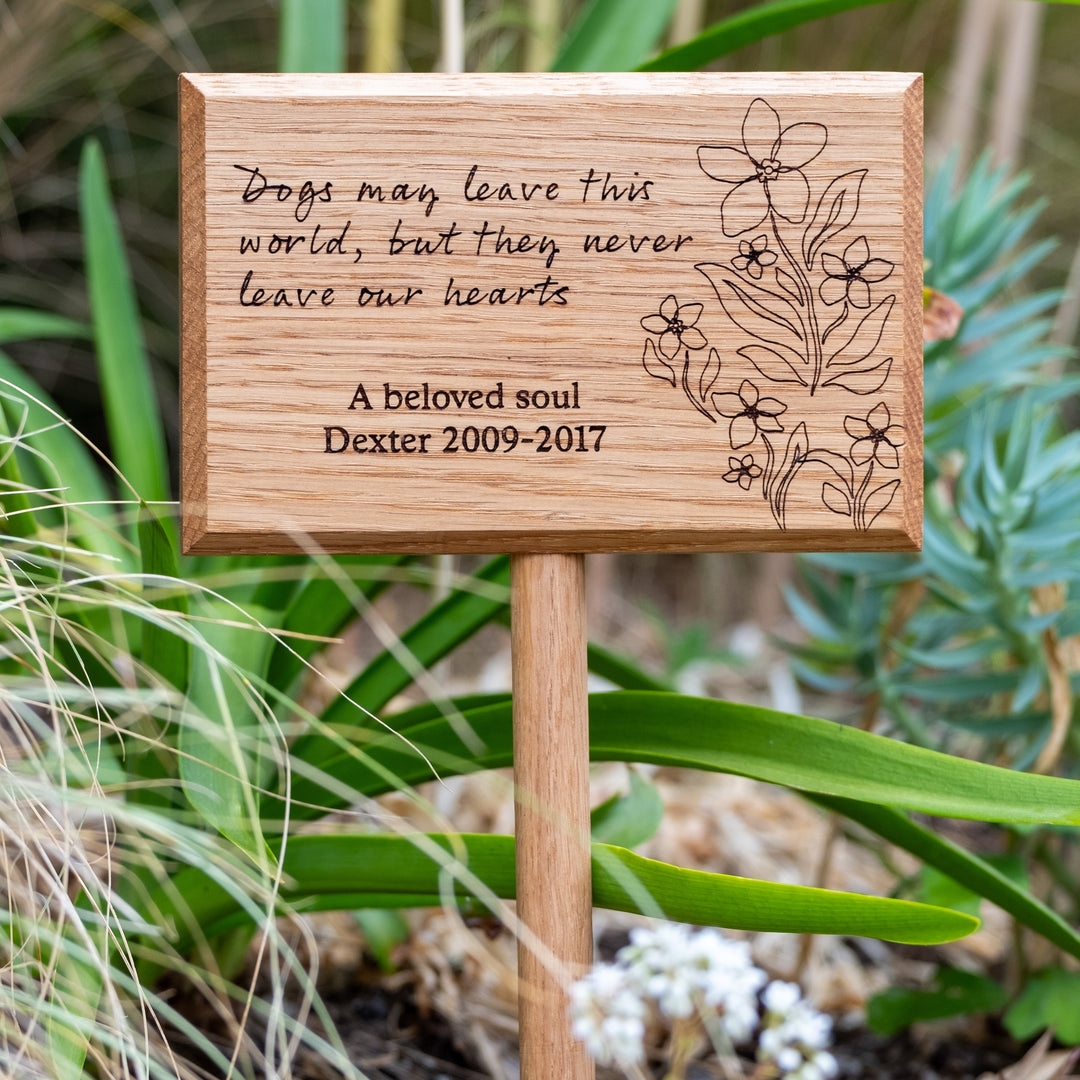 Dogs may leave this
world, but they never
leave our hearts
A beloved soul
Dexter 2009-2017